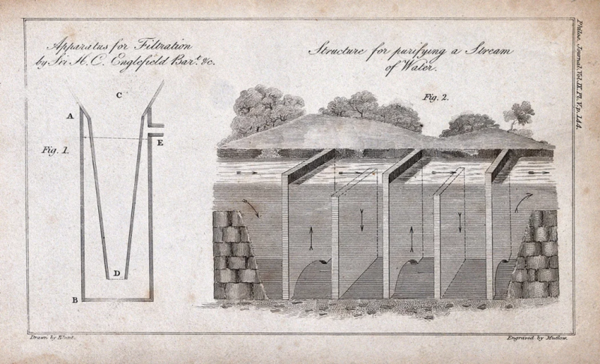 Apparatus for Filtration
by Sir H. C. Englefield Bart. &c.
Structure for purifying a Stream
of Water.
Philos. Journal. Vol. IX. Pl. V. p. 144.
Fig. 1.
A
C
E
D
B
Fig. 2.
Engraved by Mutlow.